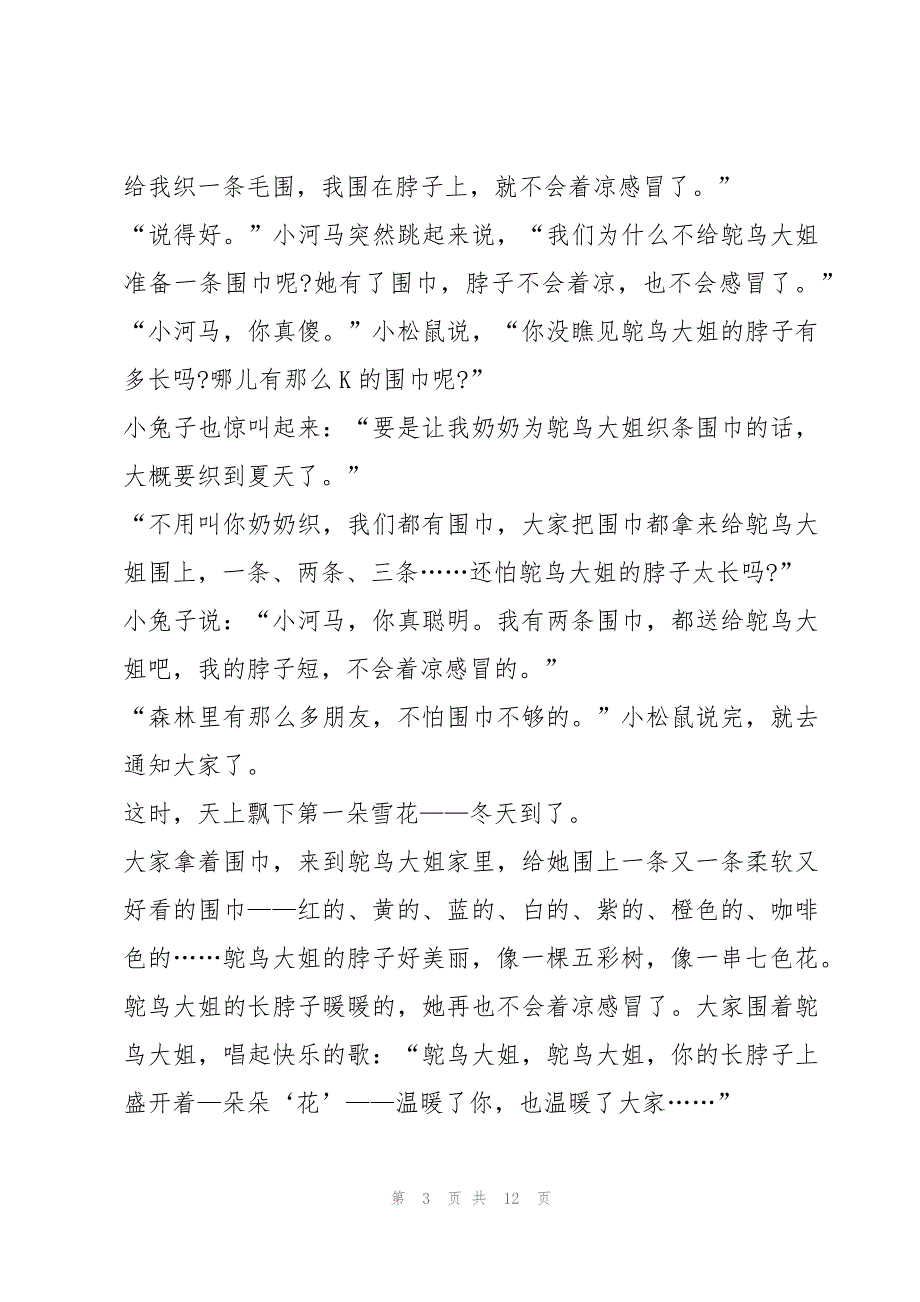 给我织一条毛围，我围在脖子上，就不会着凉感冒了。”
“说得好。”小河马突然跳起来说，“我们为什么不给鸵鸟大姐
准备一条围巾呢?她有了围巾，脖子不会着凉，也不会感冒了。”
“小河马，你真傻。”小松鼠说，“你没瞧见鸵鸟大姐的脖子有
多长吗?哪儿有那么K的围巾呢?”
小兔子也惊叫起来：“要是让我奶奶为鸵鸟大姐织条围巾的话，
大概要织到夏天了。”
“不用叫你奶奶织，我们都有围巾，大家把围巾都拿来给鸵鸟大
姐围上，一条、两条、三条……还怕鸵鸟大姐的脖子太长吗?”
小兔子说：“小河马，你真聪明。我有两条围巾，都送给鸵鸟大
姐吧，我的脖子短，不会着凉感冒的。”
“森林里有那么多朋友，不怕围巾不够的。”小松鼠说完，就去
通知大家了。
这时，天上飘下第一朵雪花——冬天到了。
大家拿着围巾，来到鸵鸟大姐家里，给她围上一条又一条柔软又
好看的围巾——红的、黄的、蓝的、白的、紫的、橙色的、咖啡
色的……鸵鸟大姐的脖子好美丽，像一棵五彩树，像一串七色花。
鸵鸟大姐的长脖子暖暖的，她再也不会着凉感冒了。大家围着鸵
鸟大姐，唱起快乐的歌：“鸵鸟大姐，鸵鸟大姐，你的长脖子上
盛开着—朵朵‘花’——温暖了你，也温暖了大家……”
第 3 页 共 12 页